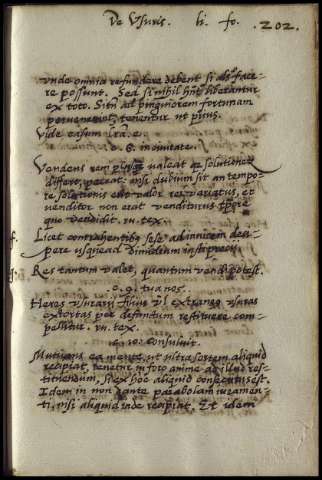 De Usuris. li. fo. .202.
unde omnia refundere debent si absq; face-
re possunt. Sed si nihil hñt liberantur
ex toto. Sitñ ad pinguiorem fortunam
pervenerint, tenentur ut prius.
Vide casum
c. 6. in civitate.
Vendens rem plusq; valeat qa solutionem
differt, peccat. nisi dubium sit an tempo-
re solutionis erit valor rei variatus, et
venditor non erat venditurus tpre
quo vendidit. ru. tex.
f. Licet contrahentibq sese ad invicem deci-
pere usquead dimidium iusti precii.
g. Res tantum valet, quantum vendi potest.
.c. 9. tua nos.
Heres usurarii filius vl extraneq usuras
extortas per defunctum restituere com-
pellitur. ru. tex.
c. 10. Consuluit.
Mutuans ea mente, ut ultra sortem aliquid
recipiat, tenetur in foro anime ad illud res-
tituendum, si ex hoc aliquid consecutus est.
Idem in non dante parabolam iuramen-
ti, nisi aliquid inde recipiat. Et idem